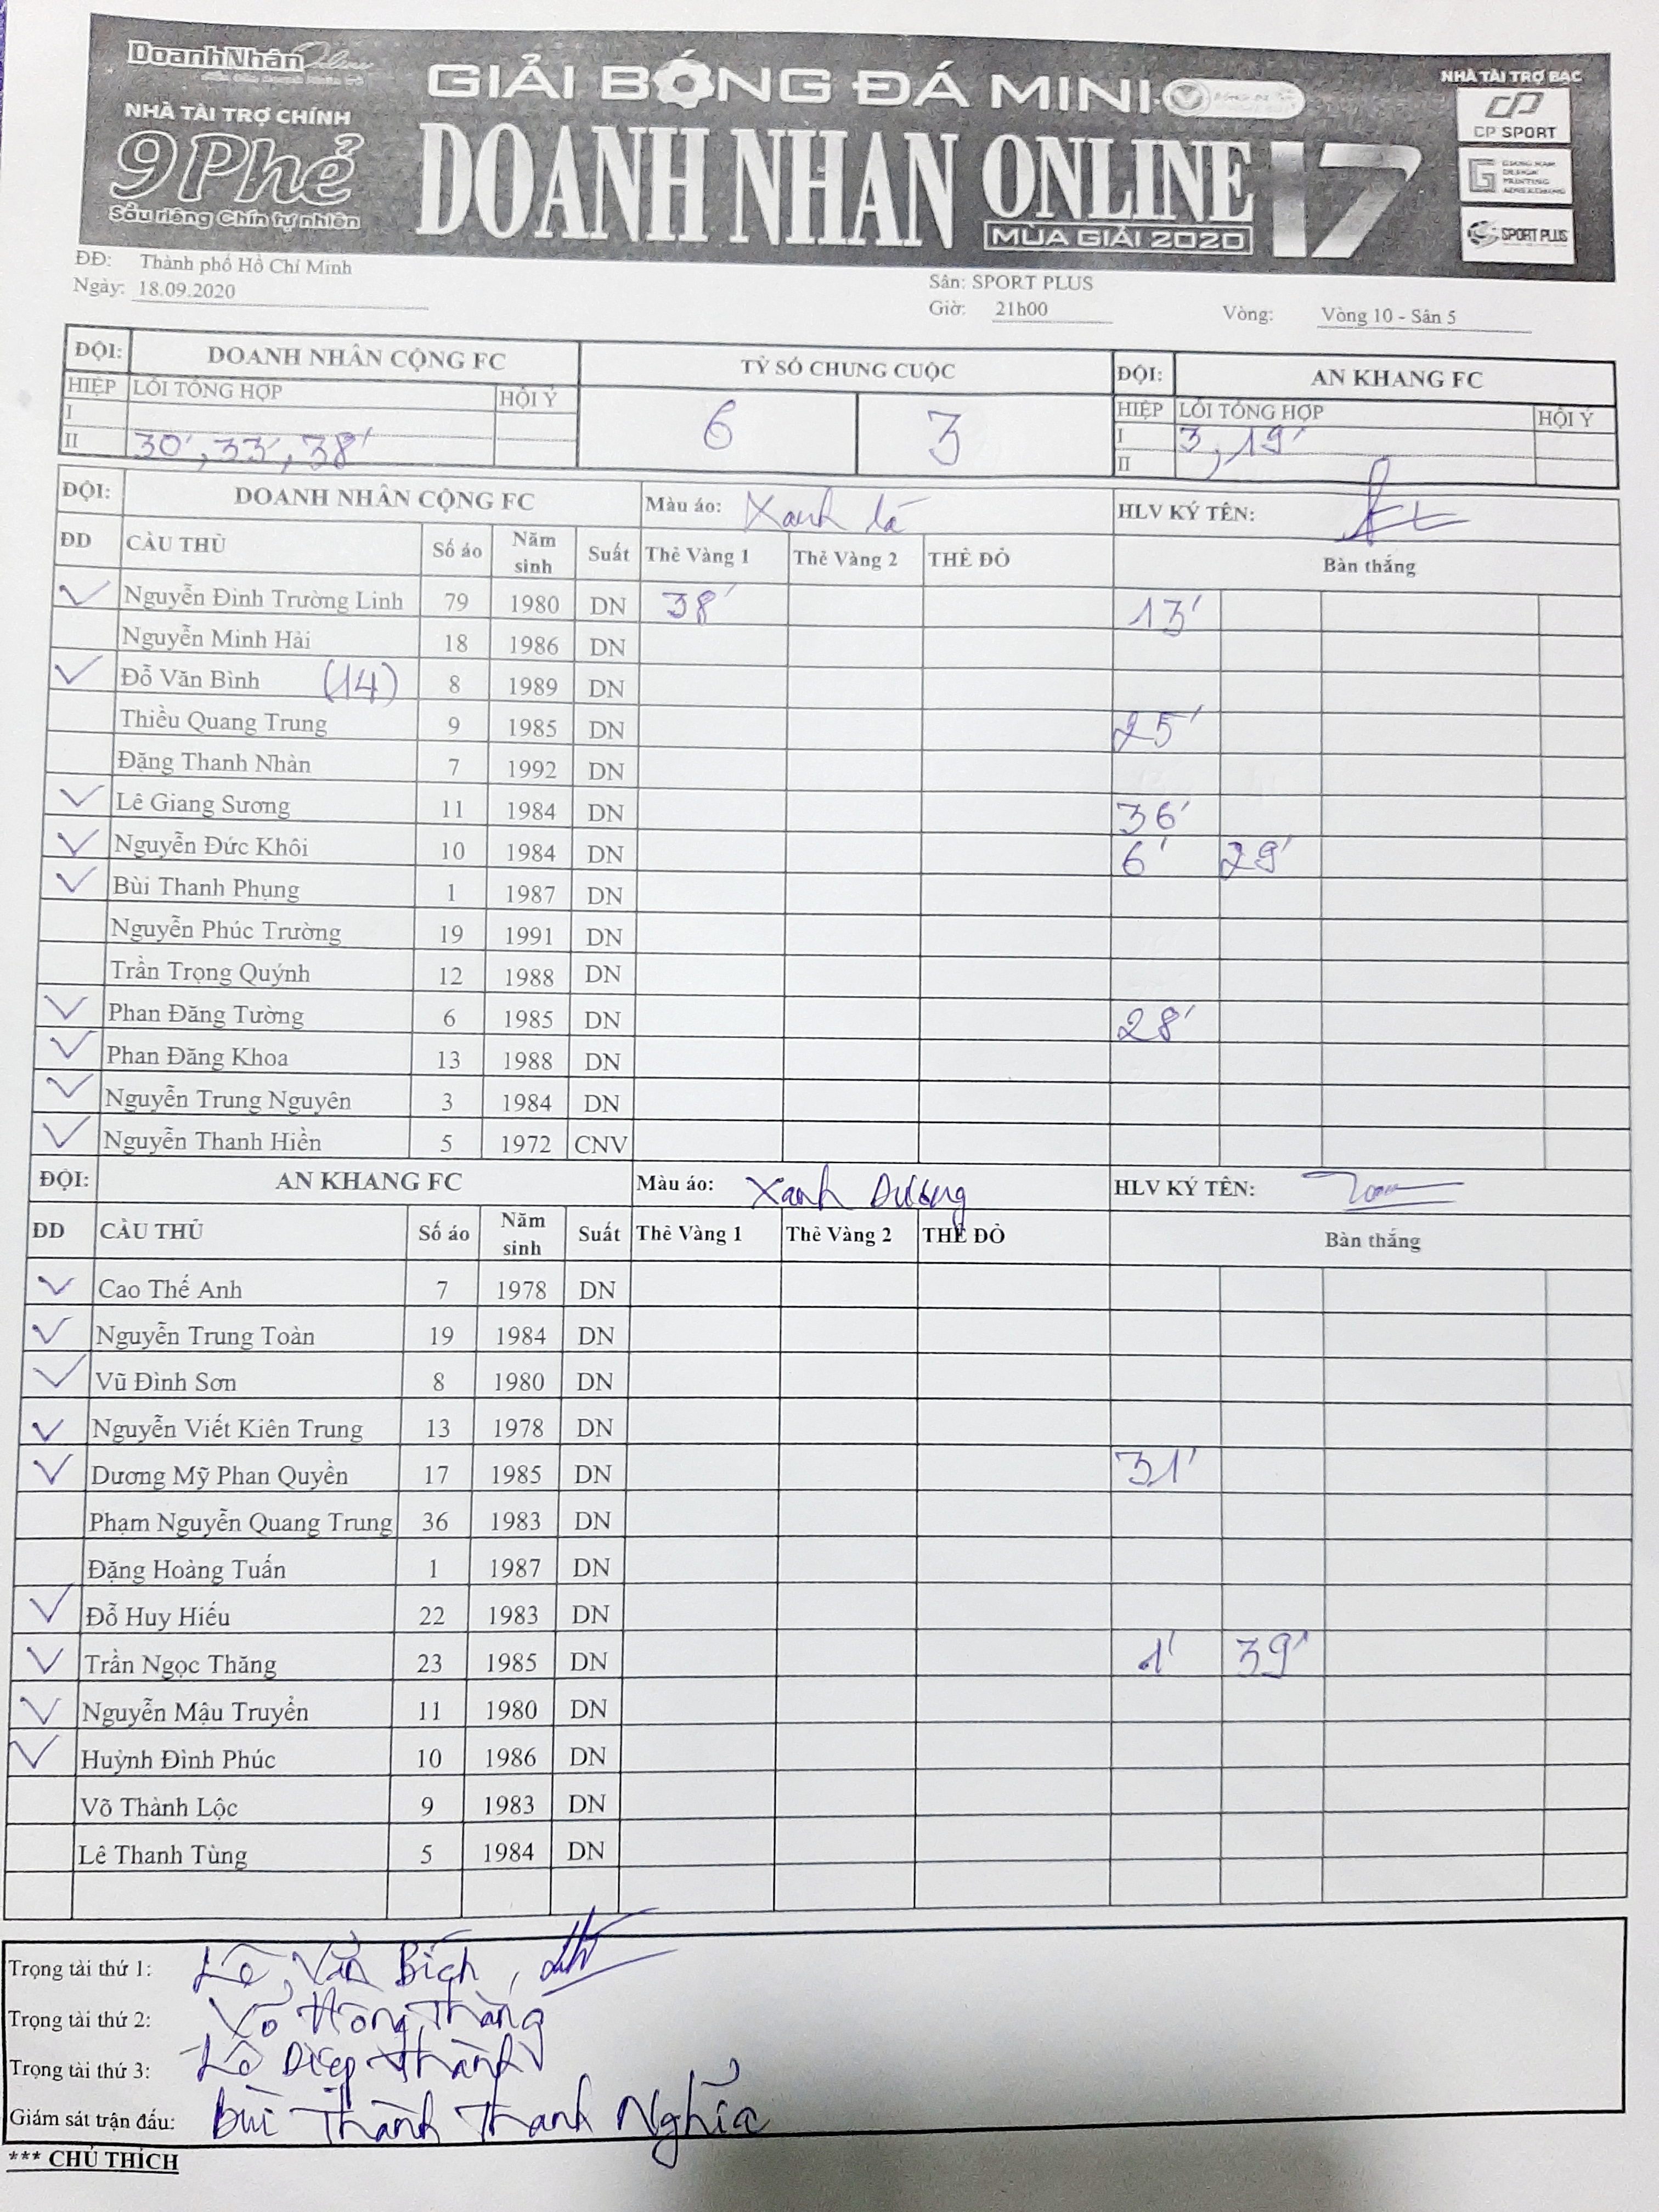 DoanhNhân Online
NHÀ TÀI TRỢ CHÍNH
9Phẻ
Sầu riêng Chín tự nhiên
GIẢI BÓNG ĐÁ MINI
DOANH NHÂN ONLINE 17
MÙA GIẢI 2020
NHÀ TÀI TRỢ BẠC
CP SPORT
SPORT PLUS
ĐĐ: Thành phố Hồ Chí Minh Sân: SPORT PLUS
Ngày: 18.09.2020 Giờ: 21h00 Vòng: Vòng 10 - Sân 5
ĐỘI: DOANH NHÂN CỘNG FC TỶ SỐ CHUNG CUỘC ĐỘI: AN KHANG FC
HIỆP LỖI TỔNG HỢP HỘI Ý 6 3 HIỆP LỖI TỔNG HỢP HỘI Ý
I I 3, 19'
II 30', 33', 38' II
ĐỘI: DOANH NHÂN CỘNG FC Màu áo: Xanh lá HLV KÝ TÊN:
ĐD CẦU THỦ Số áo Năm sinh Suất Thẻ Vàng 1 Thẻ Vàng 2 THẺ ĐỎ Bàn thắng
Nguyễn Đình Trường Linh 79 1980 DN 38' 13'
Nguyễn Minh Hải 18 1986 DN
Đỗ Văn Bình (14) 8 1989 DN
Thiều Quang Trung 9 1985 DN 25'
Đặng Thanh Nhàn 7 1992 DN
Lê Giang Sương 11 1984 DN 36'
Nguyễn Đức Khôi 10 1984 DN 6' 29'
Bùi Thanh Phụng 1 1987 DN
Nguyễn Phúc Trường 19 1991 DN
Trần Trọng Quýnh 12 1988 DN
Phan Đăng Tường 6 1985 DN 28'
Phan Đăng Khoa 13 1988 DN
Nguyễn Trung Nguyên 3 1984 DN
Nguyễn Thanh Hiền 5 1972 CNV
ĐỘI: AN KHANG FC Màu áo: Xanh Dương HLV KÝ TÊN:
ĐD CẦU THỦ Số áo Năm sinh Suất Thẻ Vàng 1 Thẻ Vàng 2 THẺ ĐỎ Bàn thắng
Cao Thế Anh 7 1978 DN
Nguyễn Trung Toàn 19 1984 DN
Vũ Đình Sơn 8 1980 DN
Nguyễn Viết Kiên Trung 13 1978 DN
Dương Mỹ Phan Quyền 17 1985 DN 31'
Phạm Nguyễn Quang Trung 36 1983 DN
Đặng Hoàng Tuấn 1 1987 DN
Đỗ Huy Hiếu 22 1983 DN
Trần Ngọc Thăng 23 1985 DN 1' 39'
Nguyễn Mậu Truyền 11 1980 DN
Huỳnh Đình Phúc 10 1986 DN
Võ Thành Lộc 9 1983 DN
Lê Thanh Tùng 5 1984 DN
Trọng tài thứ 1: Lê Văn Bích,
Trọng tài thứ 2: Võ Hồng Thắng
Trọng tài thứ 3: Lê Diệp Thành
Giám sát trận đấu: Bùi Thành Thanh Nghĩa
*** CHÚ THÍCH